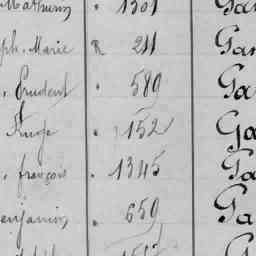 Mathurin " 1301 Ga
ph. Marie R 211 Gar
, Prudent " 589 Ga
" 152 Ga
, françois " 1345 Ga
enjamin " 659 Ga